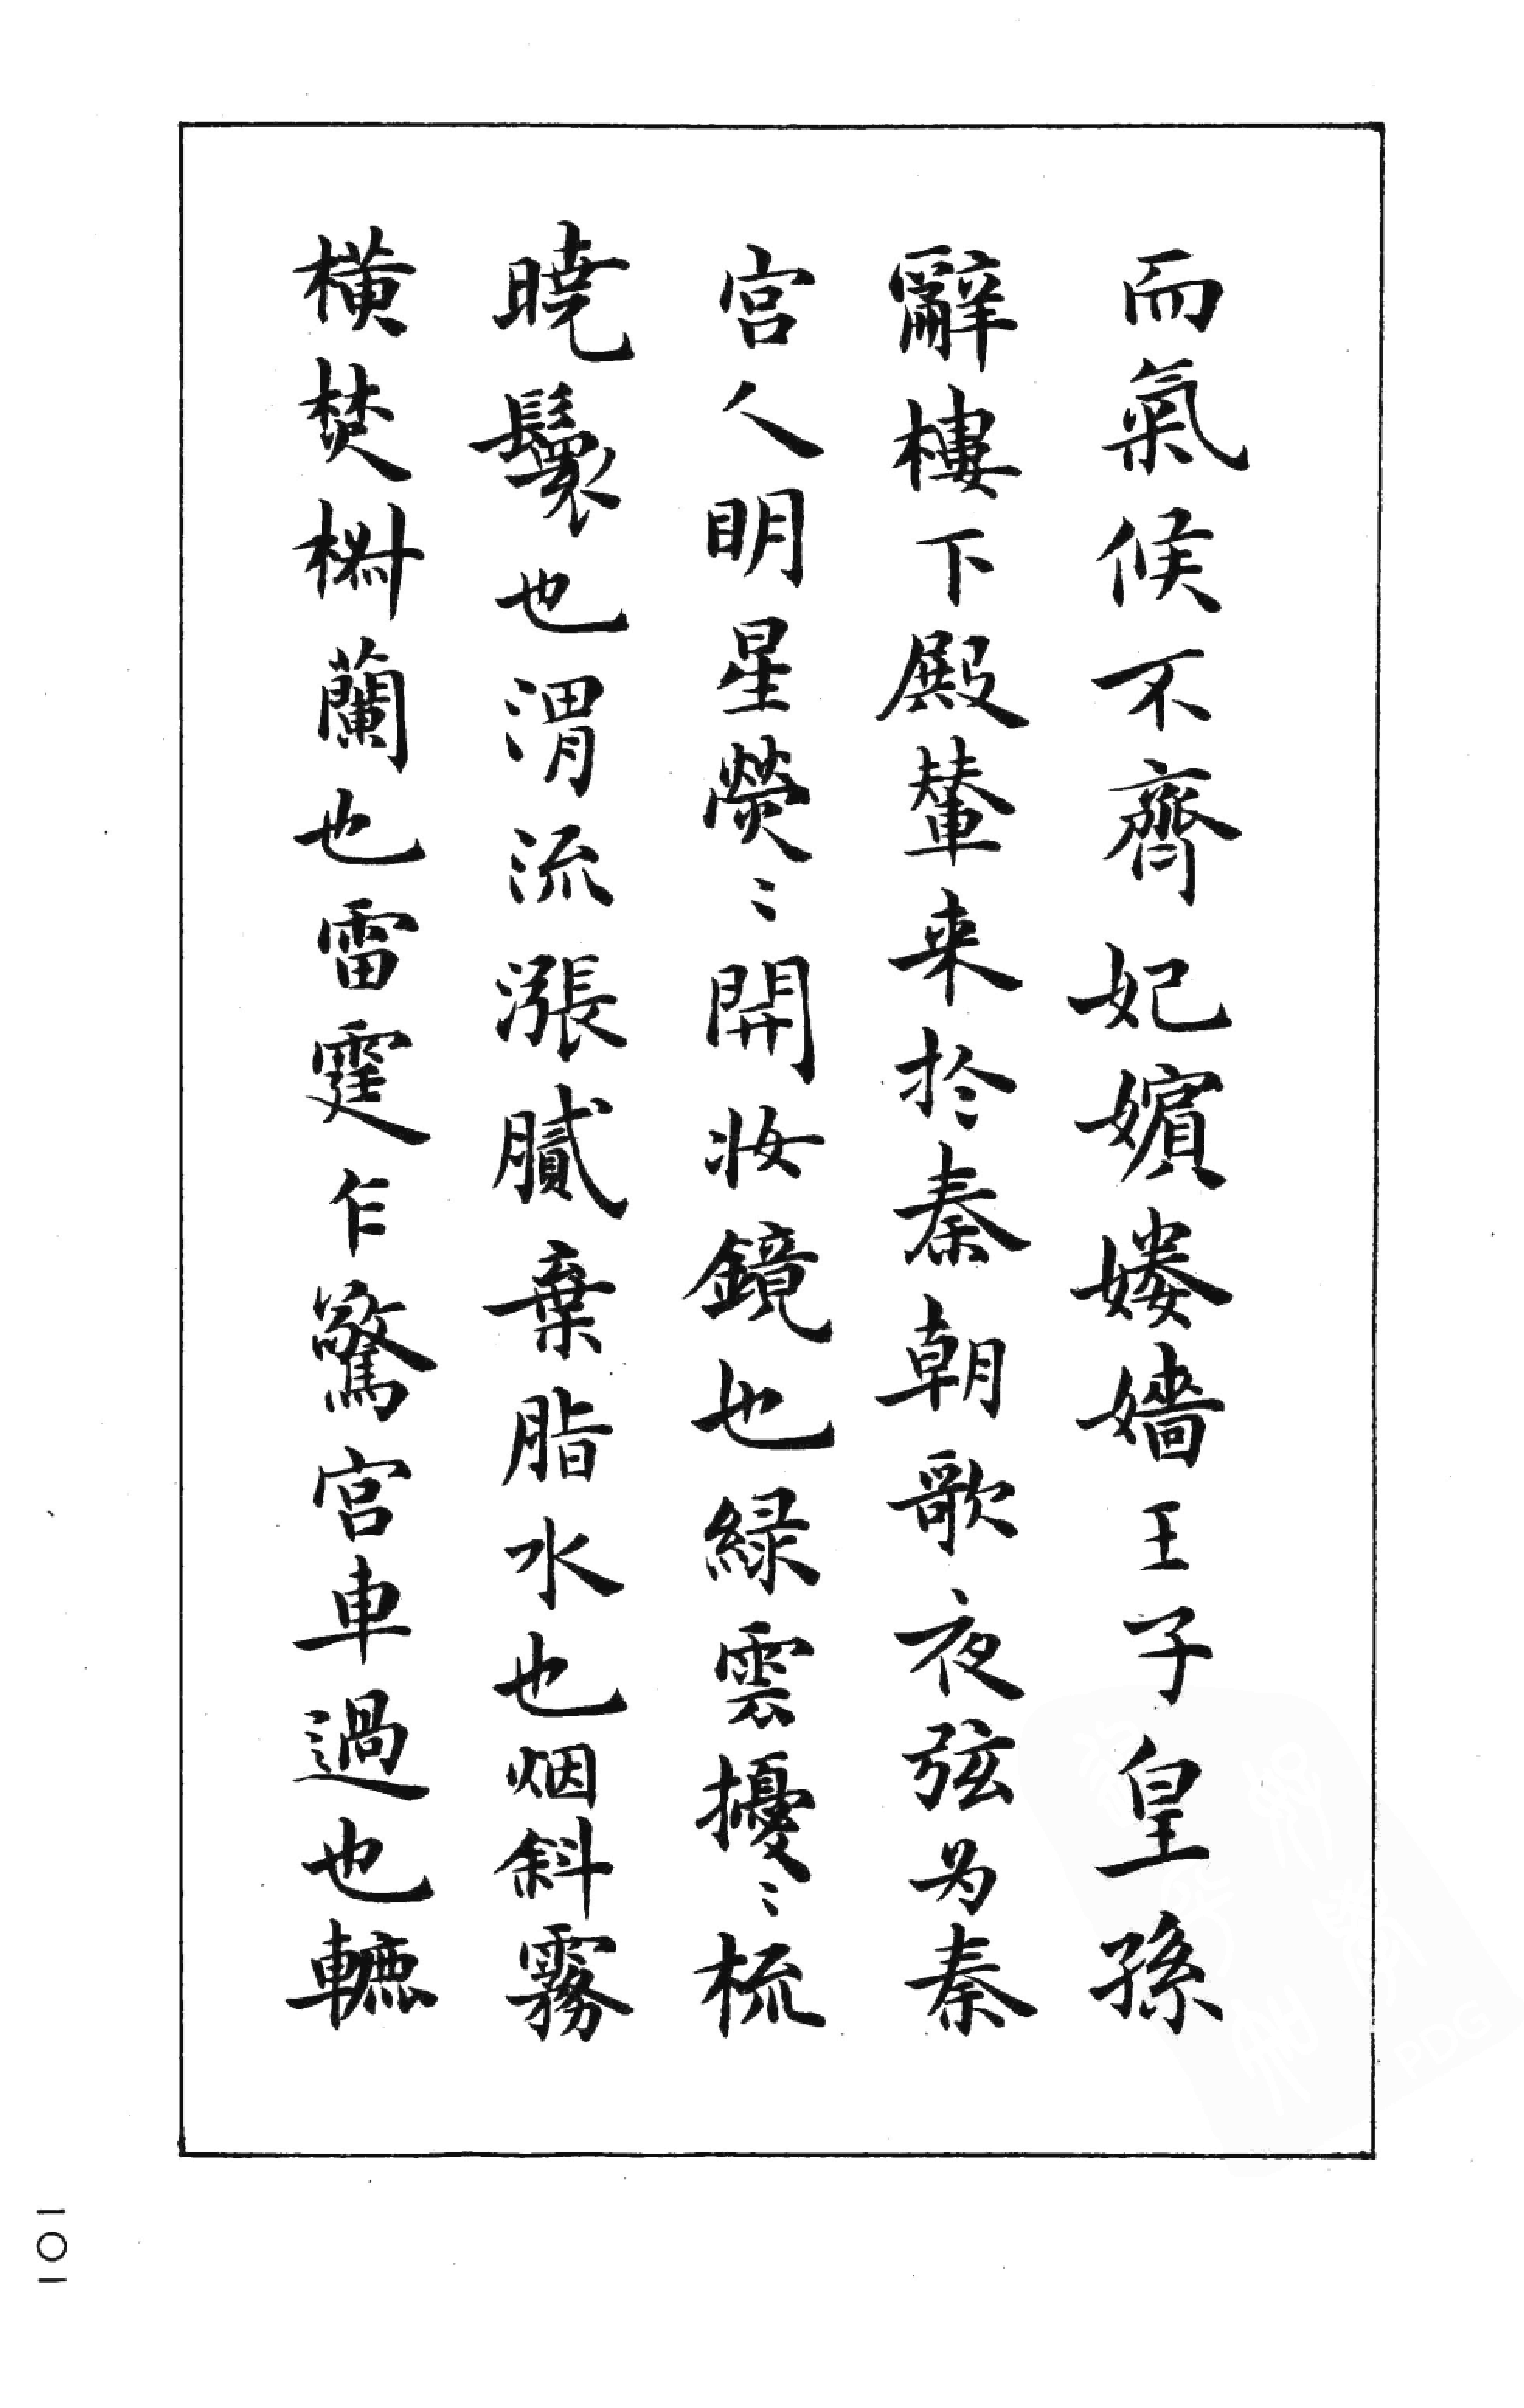 而氣候不齊妃嬪媵嬙王子皇孫
辭樓下殿輦来於秦朝歌夜弦为秦
宮人明星熒〻開妝鏡也綠雲擾〻梳
曉鬟也渭流漲膩棄脂水也烟斜霧
橫焚椒蘭也雷霆乍驚宮車過也轆
一〇一